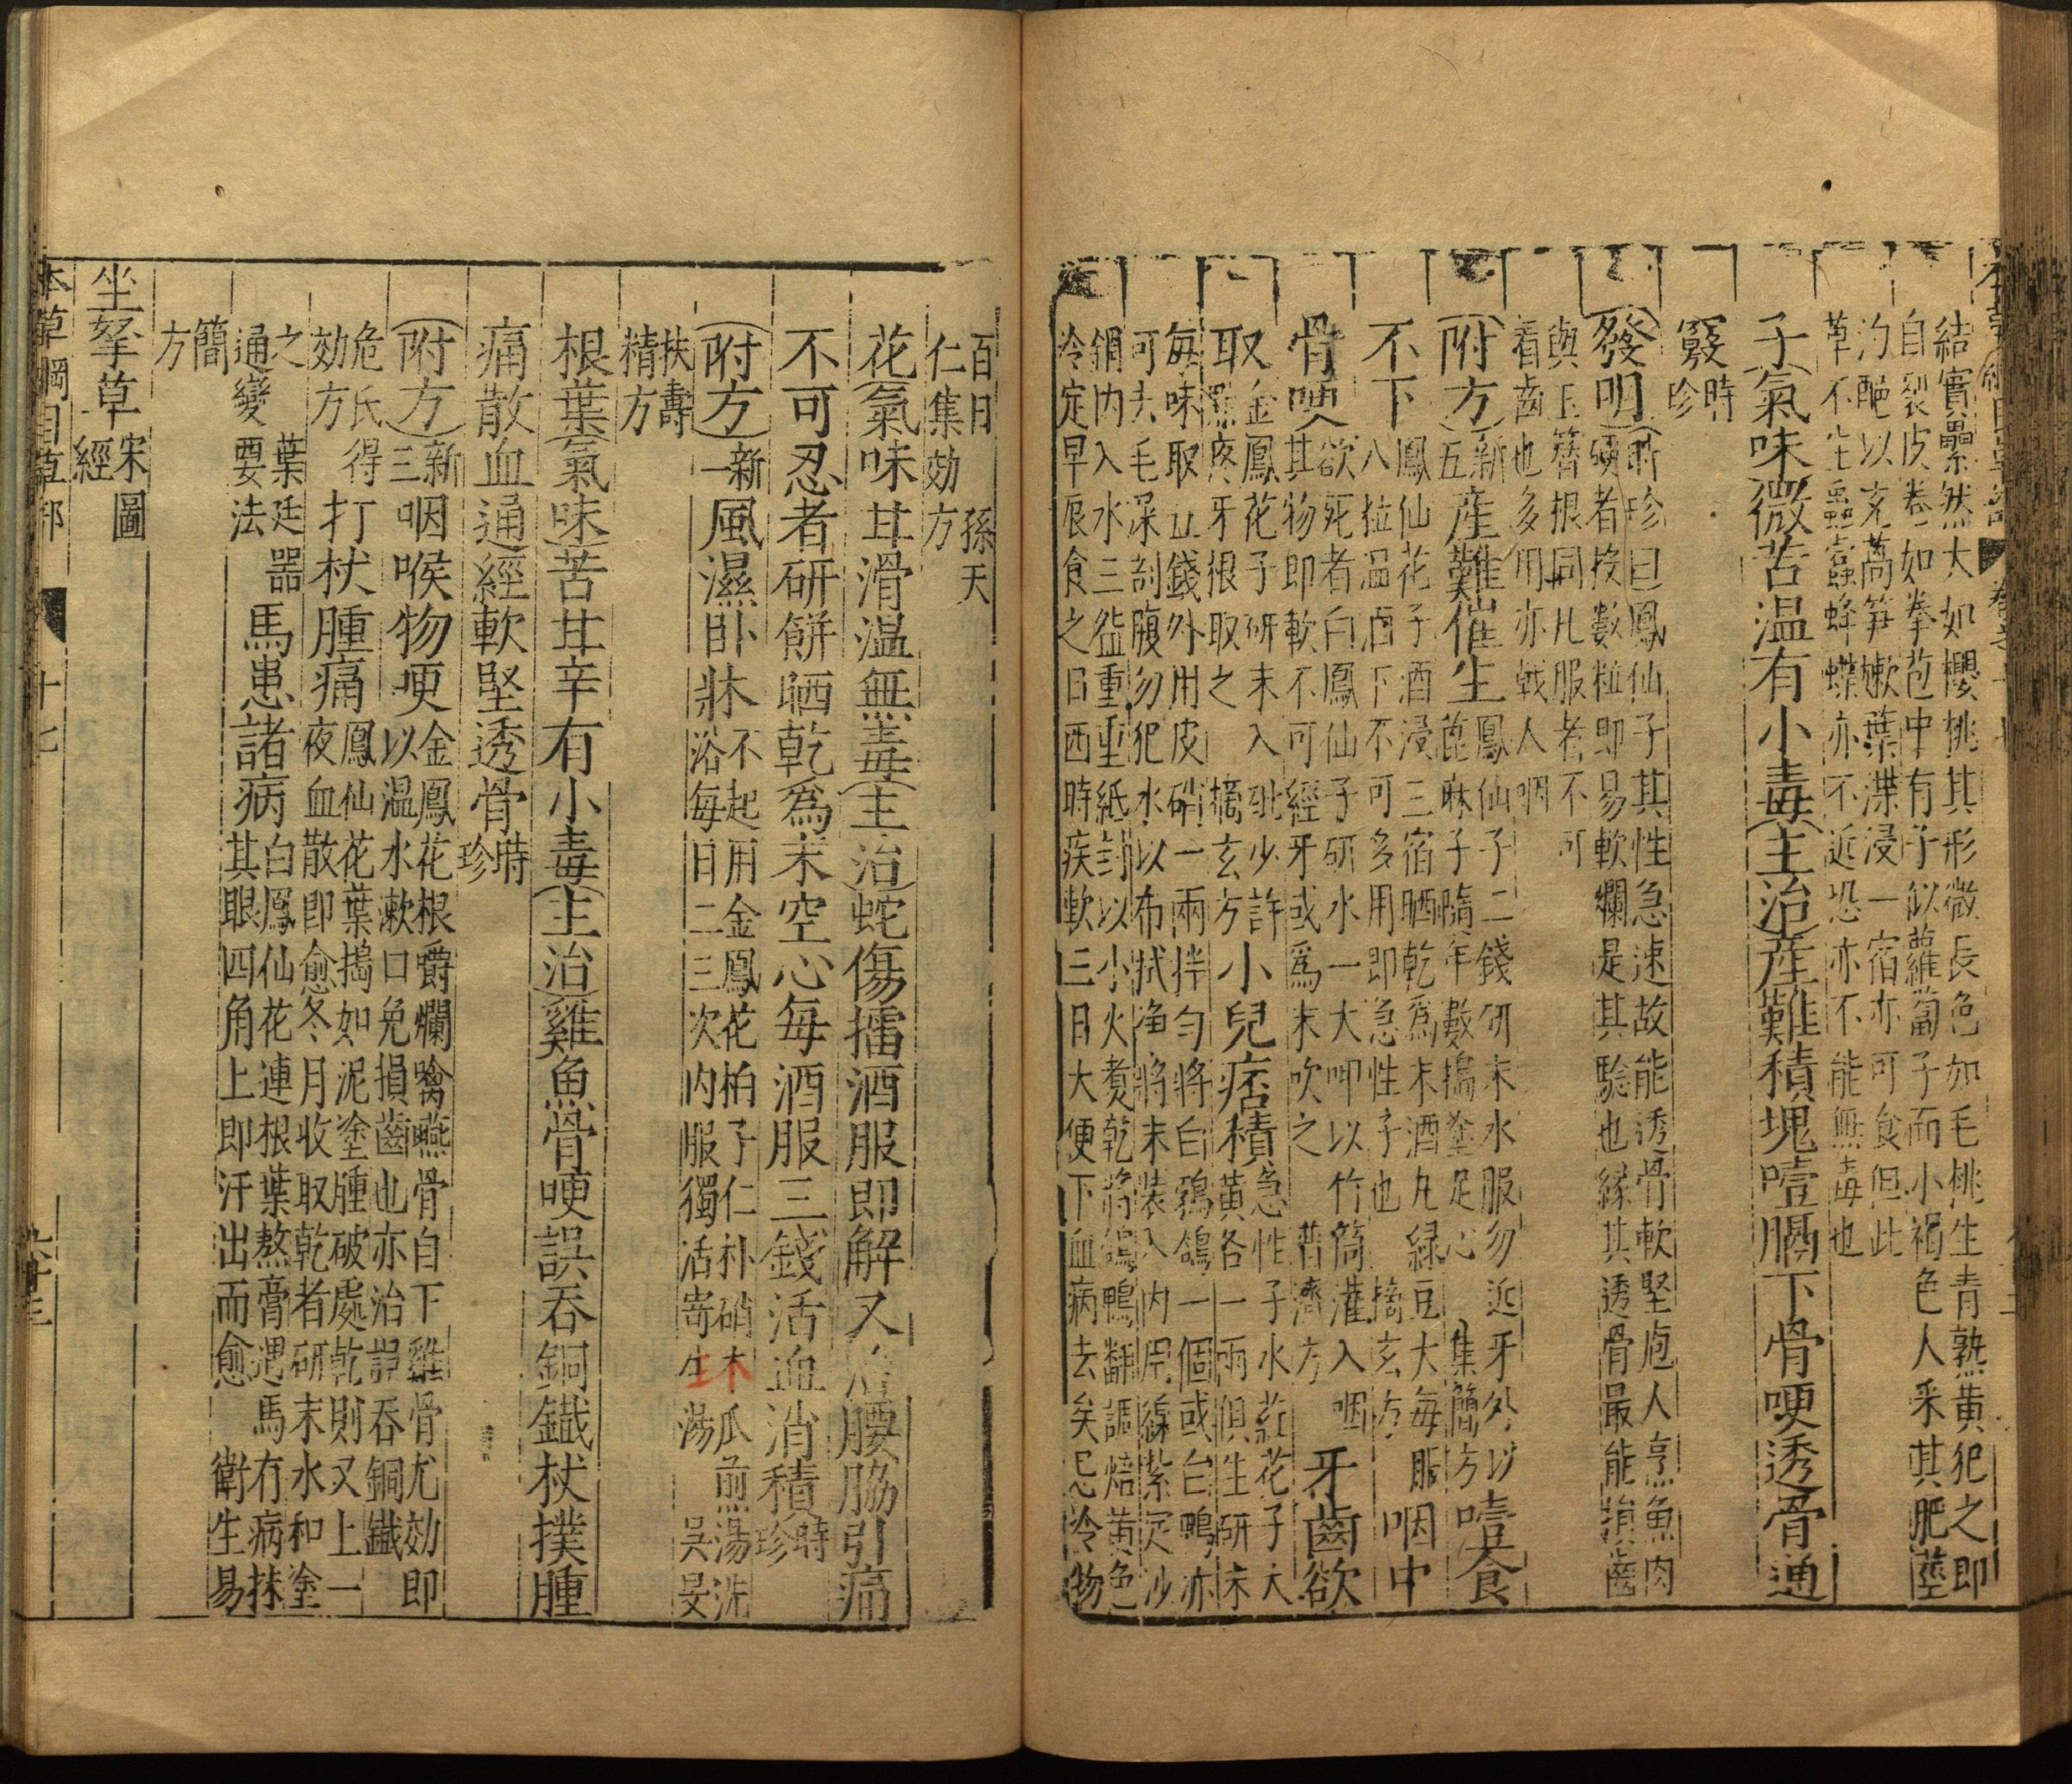 結實纍然大如櫻桃其形微長色如毛桃生青熟黃犯之即
自裂皮卷如拳苞中有子似蘿蔔子而小褐色人采其肥莖
汋䤆以充萵笋嫩葉渫浸一宿亦可食但此
草不生蟲蠹蜂蝶亦不近恐亦不能無毒也
子氣味微苦温有小毒主治産難積塊噎膈下骨哽透骨通
竅時
珍
發明時珍曰鳳仙子其性急速故能透骨軟堅庖人烹魚肉
硬者投數粒即易軟爛是其驗也緣其透骨最能損齒
與玉簪根同凡服者不可
着齒也多用亦戟人咽
附方新
五産難催生鳳仙子二錢研末水服勿近牙外以
蓖麻子隨年數搗塗足心 集簡方噎食
不下鳳仙花子酒浸三宿晒乾爲末酒丸綠豆大每服
八粒温酒下不可多用即急性子也 摘玄方咽中
骨哽欲死者白鳳仙子研水一大呷以竹筒灌入咽
其物即軟不可經牙或爲末吹之 普濟方牙齒欲
取金鳳花子研末入砒少許
點疼牙根取之 摘玄方小兒痞積急性子水葒花子大
黃各一兩俱生研末
每味取五錢外用皮硝一兩拌匀將白鵓鴿一個或白鴨亦
可去毛屎剖腹勿犯水以布拭净將末装入内用綫紥定沙
鍋内入水三盌重重紙封以小火煑乾將鴿鴨翻調焙黃色
冷定早辰食之日西時疾軟三日大便下血病去矣忌冷物
百日 孫天
仁集効方
花氣味甘滑温無毒主治蛇傷擂酒服即解又治腰脇引痛
不可忍者研餅晒乾爲末空心每酒服三錢活血消積時
珍
附方新
一風濕卧牀不起用金鳳花柏子仁朴硝木瓜煎湯洗
浴每日二三次内服獨活寄生湯 吳旻
扶壽
精方
根葉氣味苦甘辛有小毒主治雞魚骨哽誤吞銅鐵杖撲腫
痛散血通經軟堅透骨時
珍
附方新
三咽喉物哽金鳳花根嚼爛噙嚥骨自下雞骨尤効即
以温水漱口免損齒也亦治誤吞銅鐵
危氏得
効方打杖腫痛鳳仙花葉搗如泥塗腫破處乾則又上一
夜血散即愈冬月收取乾者研末水和塗
之 葉廷器
通變要法馬患諸病白鳳仙花連根葉熬膏遇馬有病抹
其眼四角上即汗出而愈 衛生易
簡
方
坐拏草宋圖
經
本草綱目草部 十七